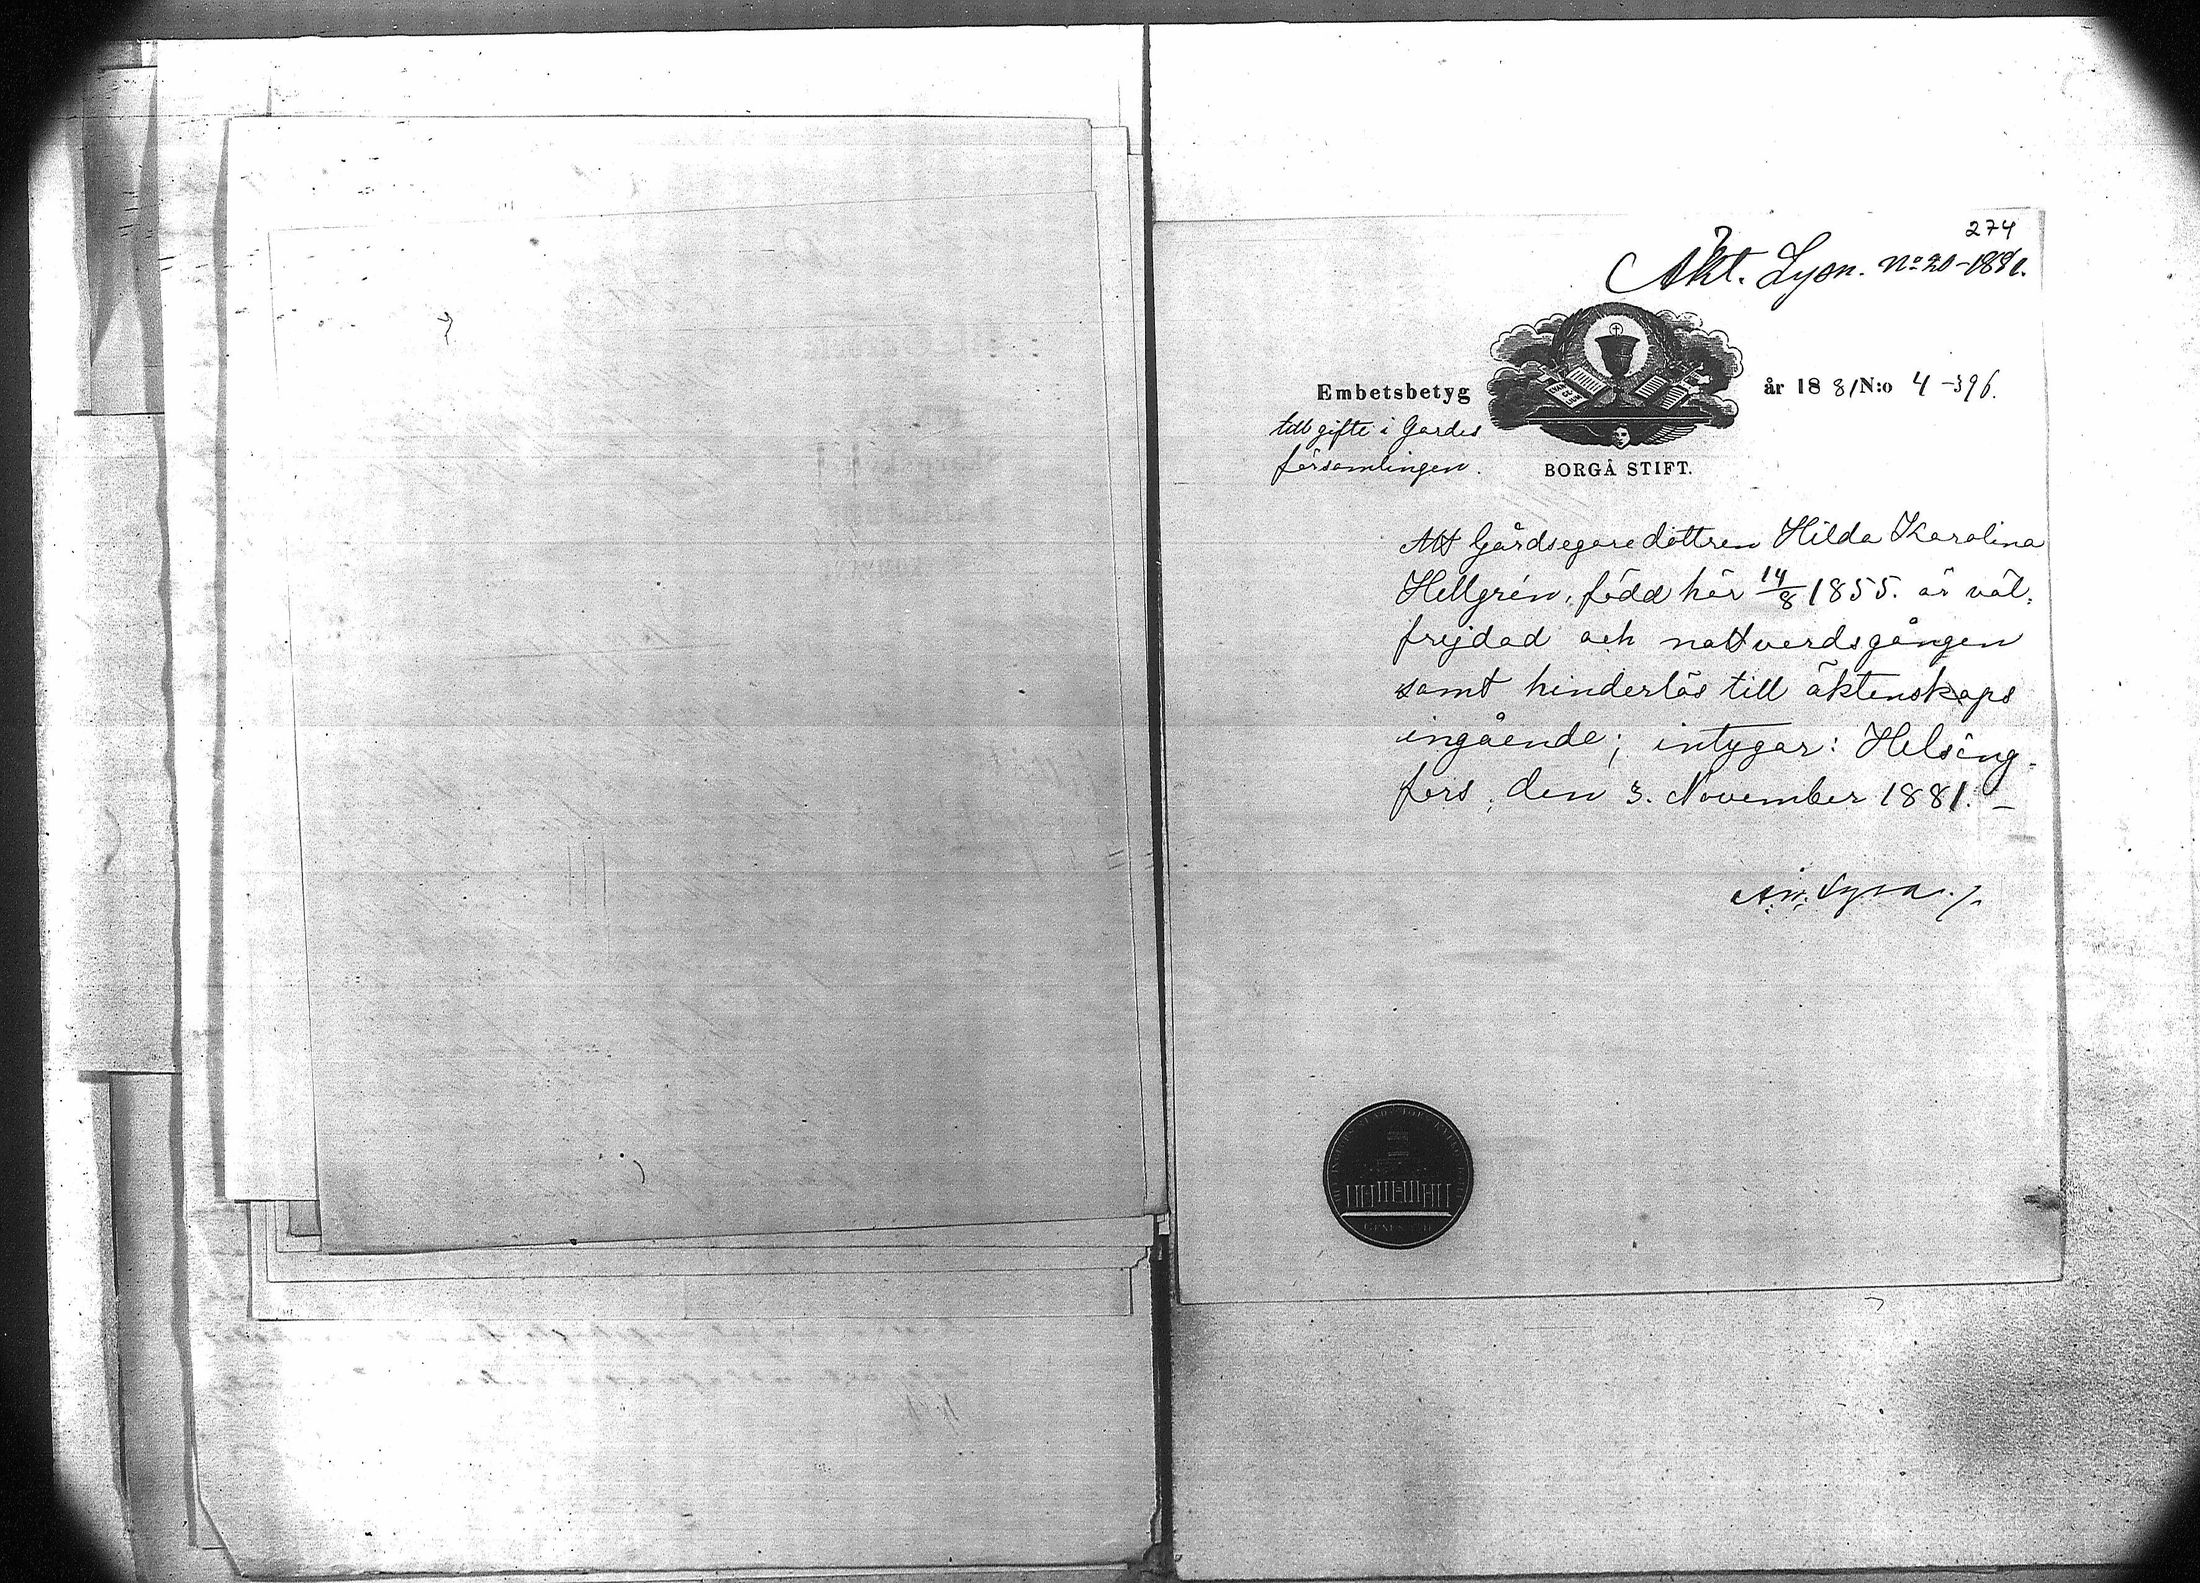 274
Akt. Lysn. No 20-1881.
Embetsbetyg år 1881 N:o 4-396.
till gifte i Gardes
församlingen.
BORGÅ STIFT.
Att Gårdsegaredottren Hilda Karolina
Hellgrén, född här 14/8 1855. är väl-
frejdad och nattverdsgången
samt hinderlös till äktenskaps
ingående; intygar: Helsing-
fors, den 3. November 1881. -